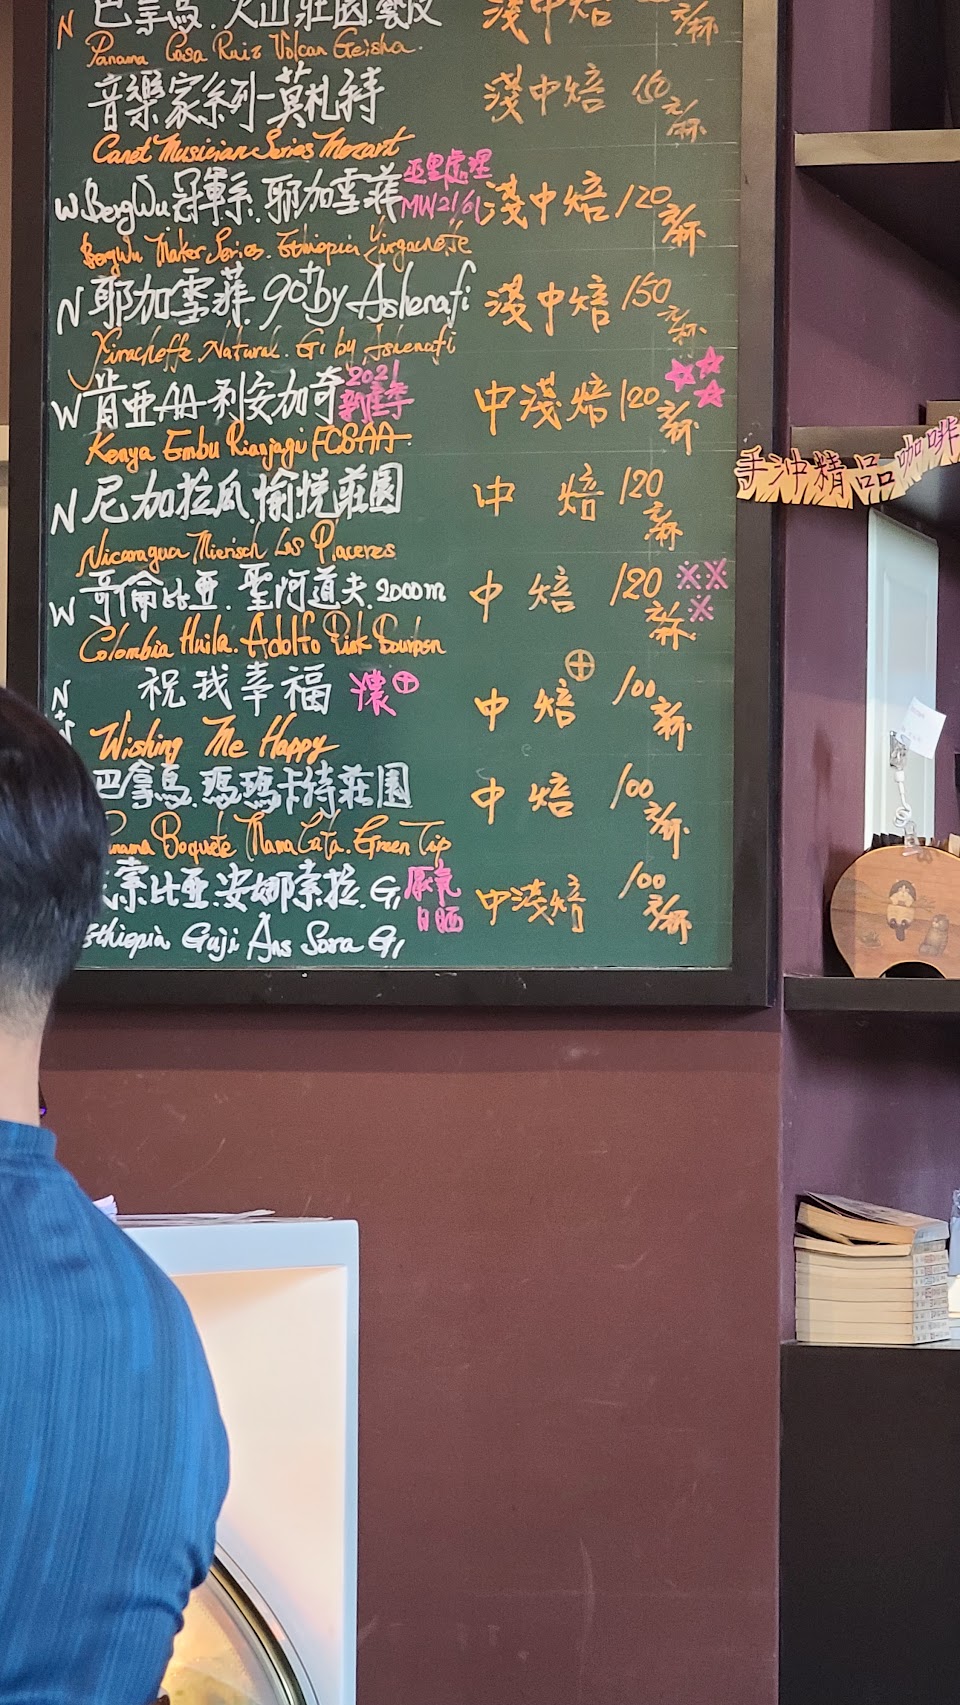 N 巴拿馬.火山莊園.藝妓 淺中焙 元/杯
Panama Casa Ruiz Volcan Geisha.
音樂家系列-莫札特 淺中焙 150元/杯
Canet Musician Series Mozart
W BergWu 冠軍系.耶加雪菲 處理 MW2161 淺中焙 120元/杯
BergWu Maker Series. Ethiopia Yirgacheffe
N 耶加雪菲.90+by Ashenafi 淺中焙 150元/杯
Yiracheffe Natural. G1 by Ashenafi
W 肯亞AA-利安加奇 2021新產季 中淺焙 120元/杯
Kenya Embu Rianjagi FCSAA
手沖精品咖啡
N 尼加拉瓜.愉悅莊園 中焙 120元/杯
Nicaragua Mierisch Las Placeres
W 哥倫比亞.聖阿道夫.2000m 中焙 120元/杯
Colombia Huila. Adolfo Pink Bourbon
N+ 祝我幸福 濃⊕ 中焙⊕ 100元/杯
Wishing Me Happy
巴拿馬.瑪瑪卡特莊園 中焙 100元/杯
Panama Boquete Mama Cata. Green Tip
索比亞.安娜索拉.G1 厭氧日晒 中淺焙 100元/杯
Ethiopia Guji Ans Sora G1